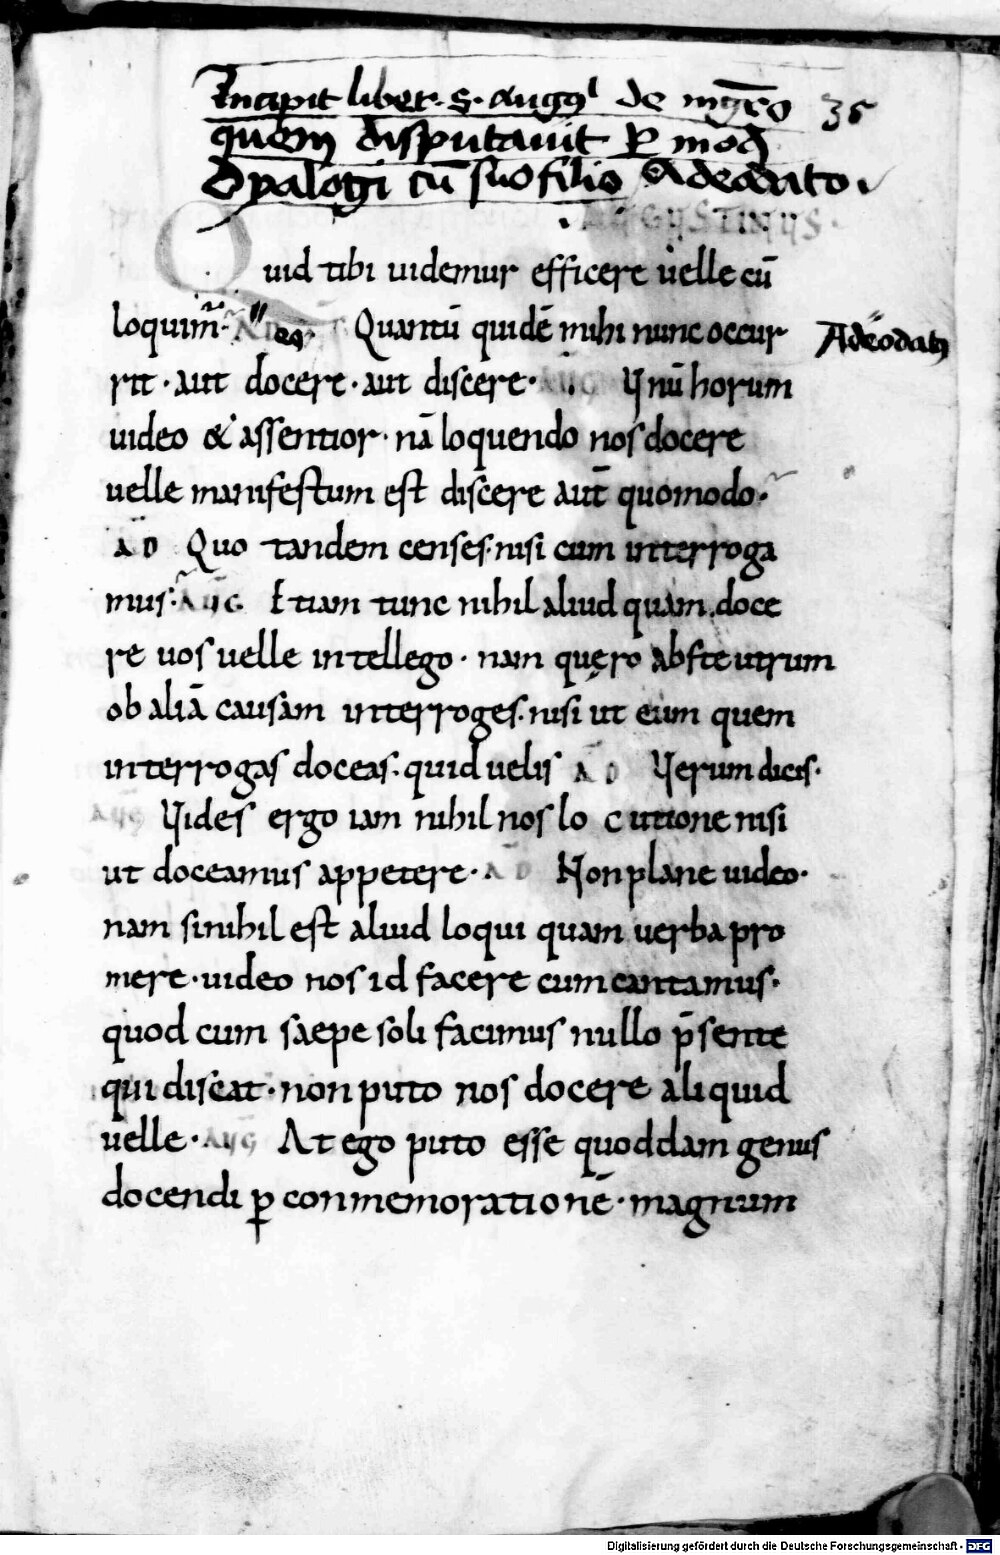 Incipit liber · S · augꝰⁱ de mgr̄o 35
quem disputavit ꝑ modū
dyalogi cū suo filio Adeodato ·
AUGUSTINUS ·
Quid tibi uidemur efficere uelle cū
loquim̄ · AD es Quantū quidē mihi nunc occur Adeodatꝰ
rit · aut docere · aut discere · AUG Unū horum
uideo & assentior · nā loquendo nos docere
uelle manifestum est discere aut̄ quomodo ·
AD Quo tandem censes · nisi cum interroga
mus · AUG Etiam tunc nihil aliud quam doce
re uos uelle intellego · nam quęro abs te utrum
ob aliā causam interroges · nisi ut eum quem
interrogas doceas · quid uelis AD Uerum dicis ·
AUG Uides ergo iam nihil nos lo cutione nisi
ut doceamus appetere · AD Non plane uideo ·
nam si nihil est aliud loqui quam uerba pro
mere · uideo nos id facere cum cantamus ·
quod cum saepe soli facimus nullo p̄sente
qui discat · non puto nos docere aliquid
uelle · AUG At ego puto esse quoddam genus
docendi ꝑ conmemorationē · magnum
Digitalisierung gefördert durch die Deutsche Forschungsgemeinschaft - DFG